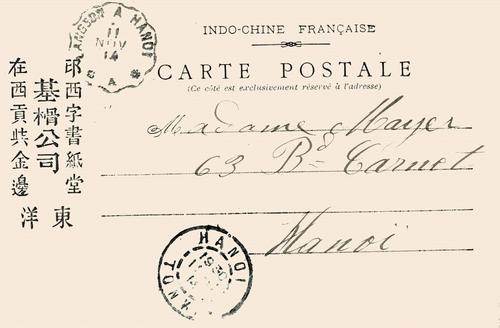 LANGSON A HANOI
11
NOV
14
A
INDO-CHINE FRANÇAISE
CARTE POSTALE
(Ce côté est exclusivement réservé à l'adresse)
Madame Mayer
63 Bd Carnot
Hanoï
HANOI
印西字書紙堂
基楈公司
在西貢𠳨金邊
東洋